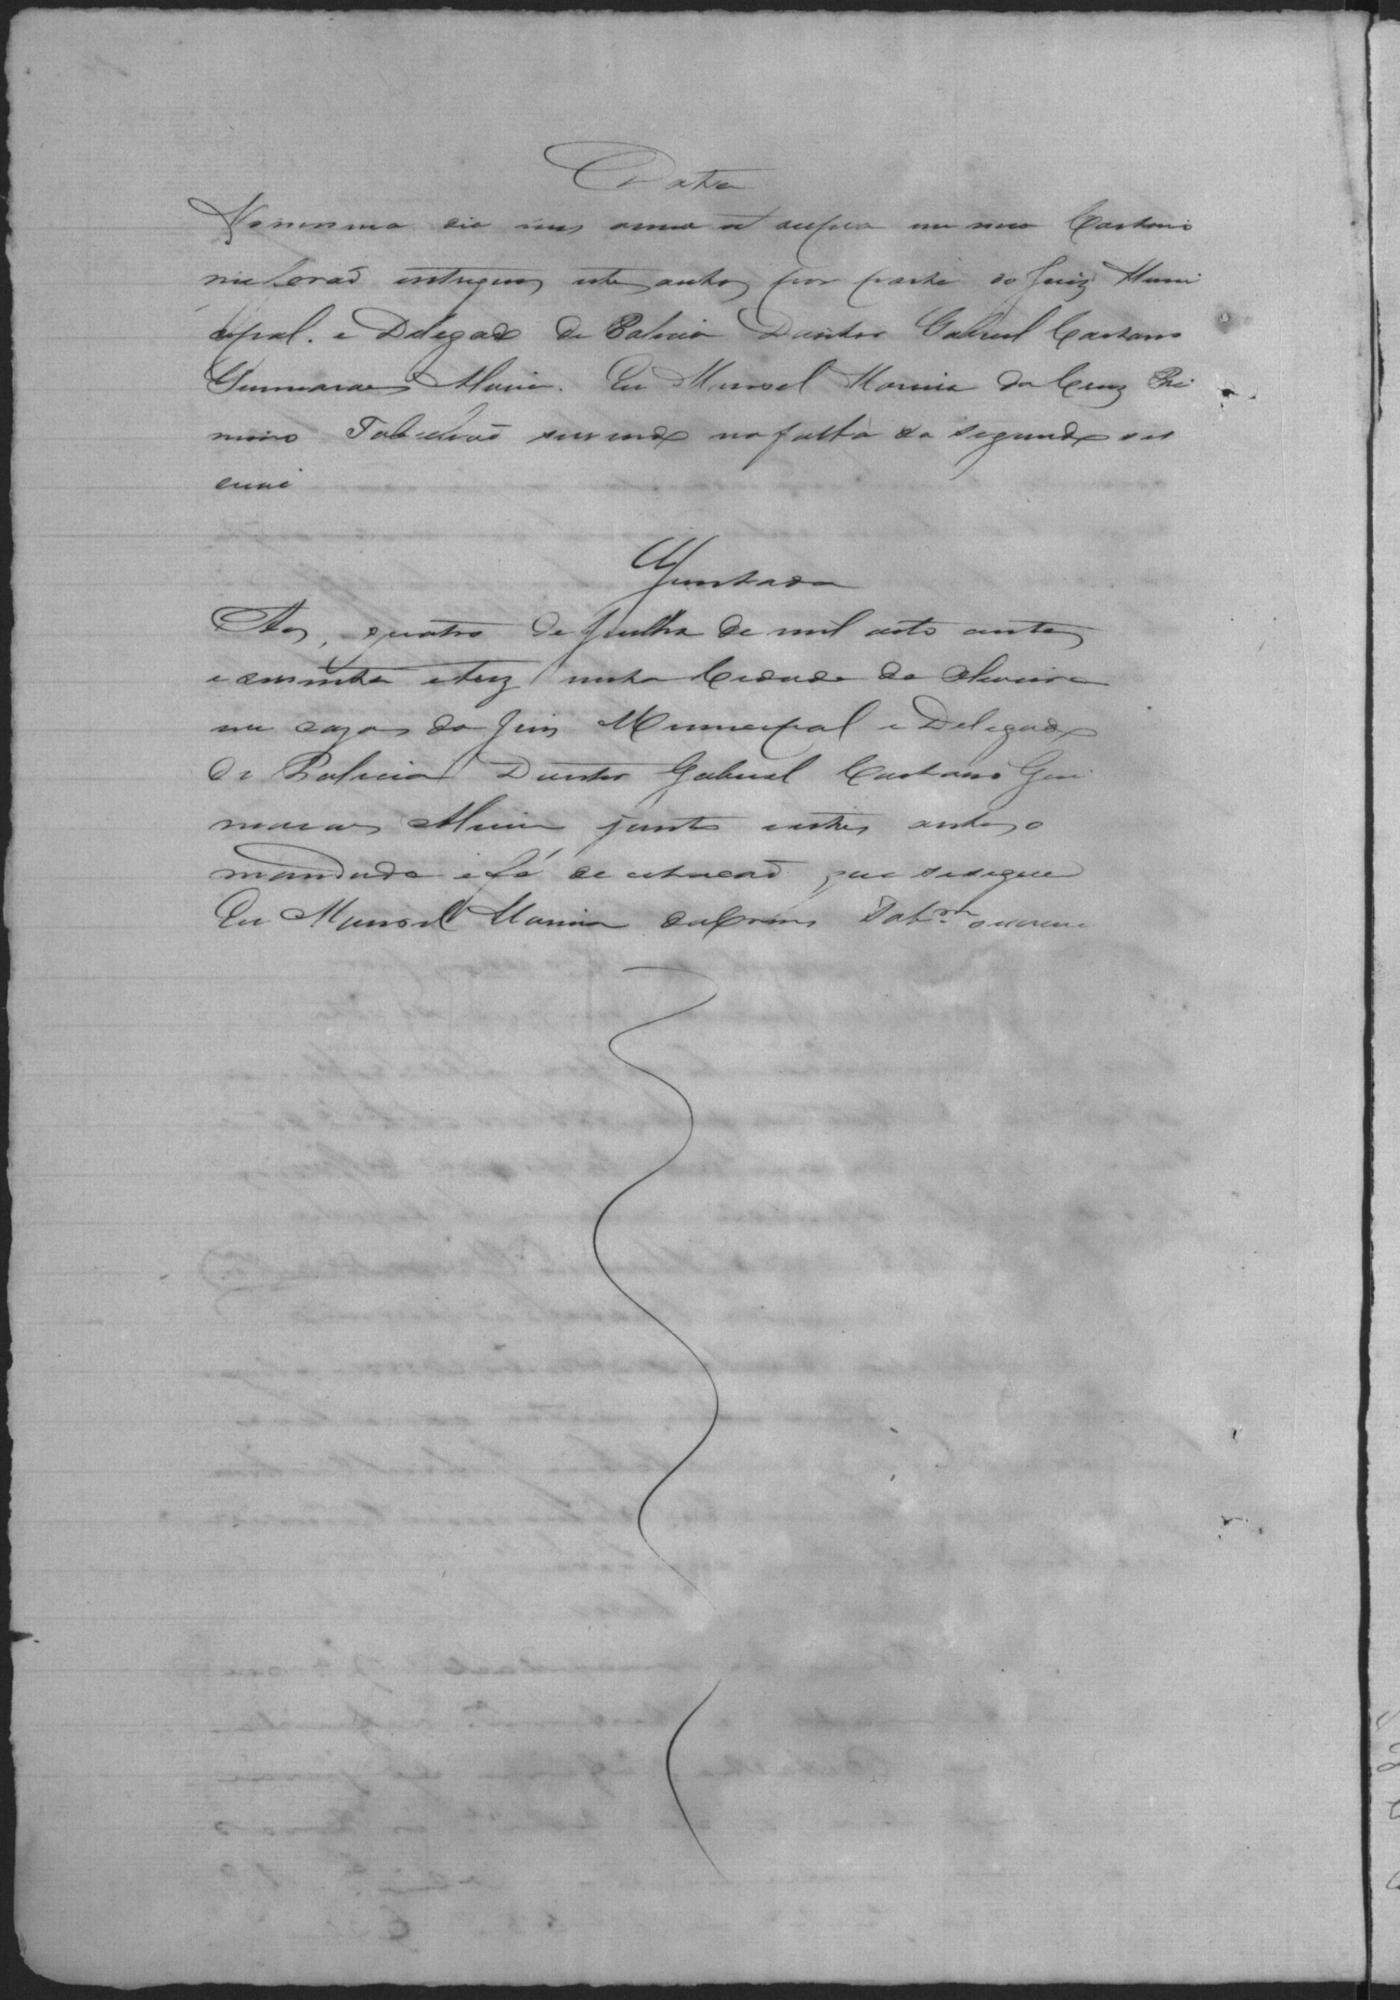 Data
No mesmo dia mes anno et supra em meu Cartorio
me forão entregues estes autos por parte do Juiz Muni
cipal e Delegado de Policia Doutor Gabriel Caetano
Guimaraes Alvim. Eu Manoel Moreira da Cruz Pri
meiro Tabelião servindo na falta do segundo es
crevi
Juntada
Aos quatro de Julho de mil oito centos
e setenta e trez nesta Cidade de Oliveira
em cazas do Juiz Municipal e Delegado
de Policia Doutor Gabriel Caetano Gui
maraes Alvim junto a estes autos o
mandado e fé de citação que se segue
Eu Manoel Moreira da Cruz Tab.am escrevi